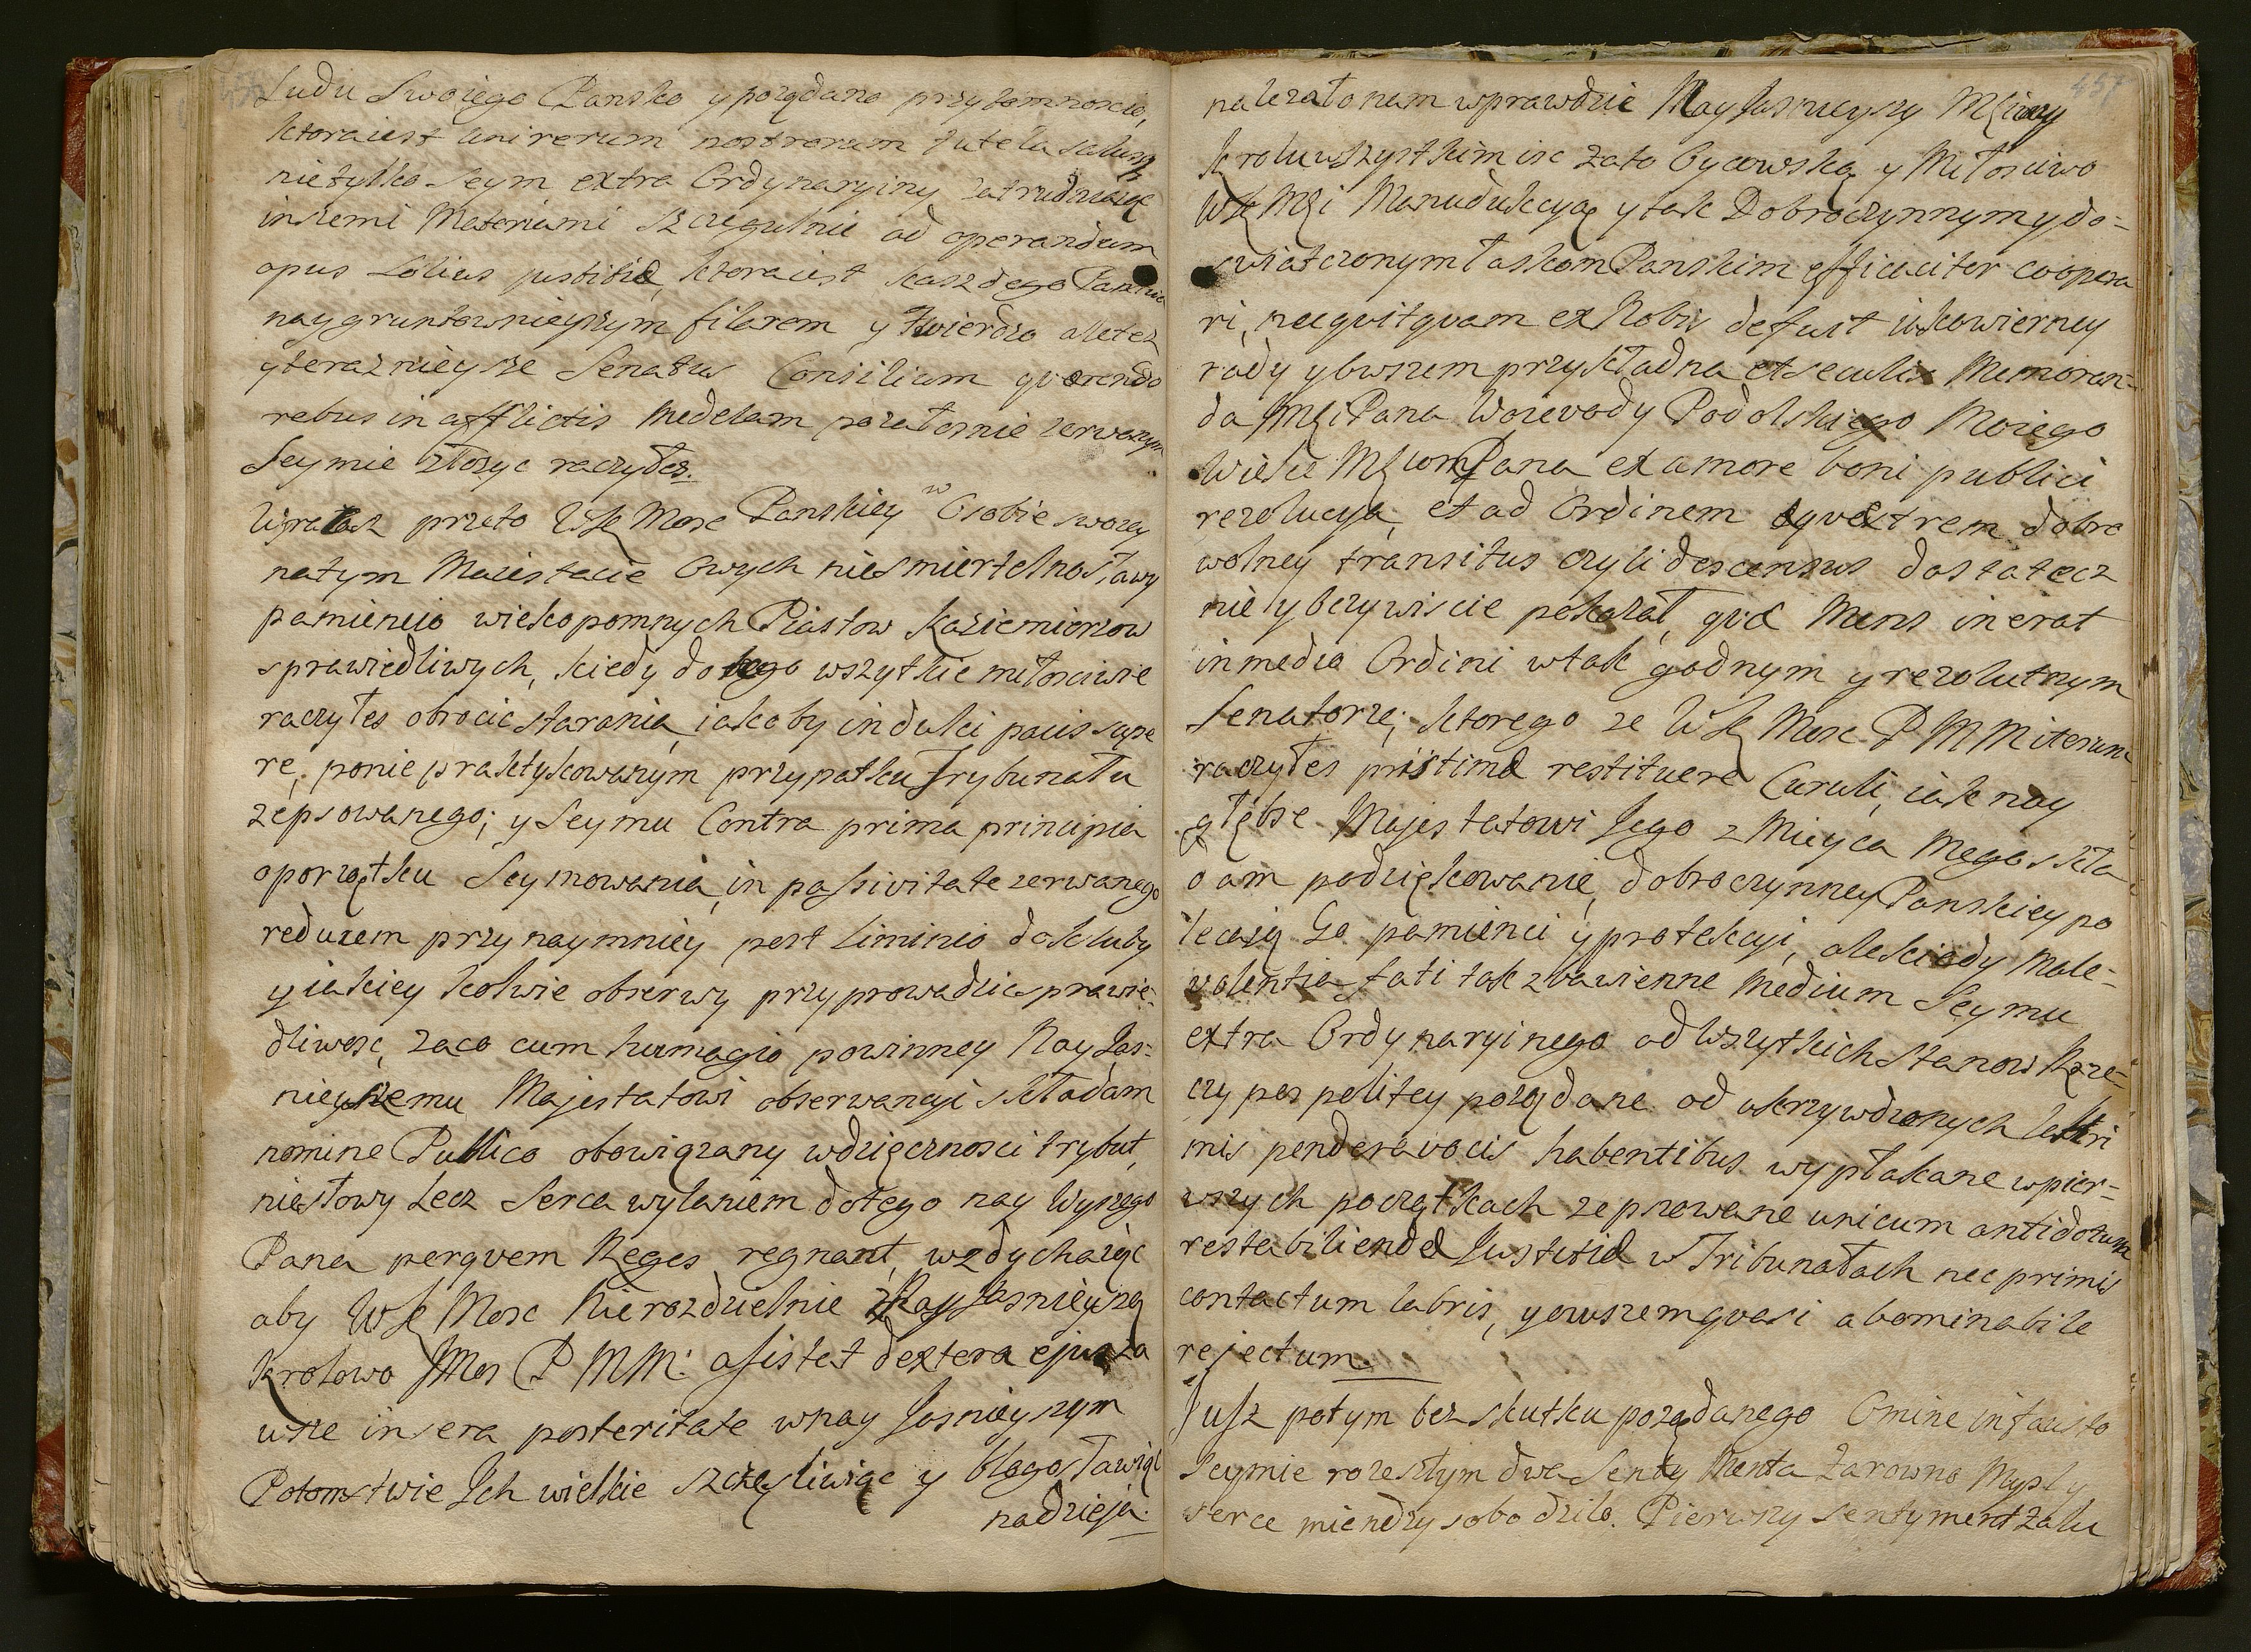 Ludu Swoiego Pansko y poządano przytomnoscio,
ktora iest unirerum nostrorum tutela salusq
nie tylko Seym extra Ordynaryiny zatrudniaiąc
inszemi Materiami szczegulnie ad operandum
opus Solius justitiæ, ktora iest każdego Panstwa
naygruntownieyszym filarem y Twierdzo ale tez
y teraznieysze Senatus Consilium qværendo
rebus in afflictis Medelam po załosnie zerwanym
Seymie złozyc raczyłes.
przeto WKMosc Panskiey w Osobie swoiey
na tym Maiestacie Owych niesmiertelno sławy
pamiencio wiekopomnych Piastow Kazimierzow
sprawiedliwych, kiedy do tego wszytkie miłosciwie
raczyłes obrocic starania, iakoby in dulci pacis sape
re, po nie praktykowanym przypatku Trybunału
zepsowanego; y Seymu Contra prima principia
o porządku Seymowania, in passivitate zerwanego
reducem przynaymniey post liminio do kluby
y iakiey kolwie obserwy przyprowadzic sprawie-
dliwosc, za co cum homagio powinney Nay Jas-
nieyszemu Majestatowi obserwancyi składam
nomine Publico obowiązany wdzięcznosci trybut,
nie słowy Lecz Serca wylaniem do tego nay Wyszego
Pana per qvem Reges regnant, wzdychaiąc
aby WKMosc Nierozdzielnie z Nay Jasnieyszą
Krolowo JMos P M M: assistat dextera ejus za
wsze in sera posteritate w nay Jasnieyszym
Potomstwie Ich wielkie szczęsliwiąc y błogosławiąc
nadzieja.
457
nalezało nam wprawdzie Nay Jasnieyszy Mciwy
Krolu wszystkim isc za to Oycowską y Miłosciwo
WKMci Manudukcyą y tak Dobroczynnym y do-
swiatczonym łaskom Panskim efficaciter coopera
ri, nec qvitqvam ex Nobis defuit iako wierney
rady y owszem przykładna et seculis Memoran-
da JMci Pana Woiewody Podolskiego Moiego
Wielce Mciom Pana ex amore boni publici
rezolucya, et ad Ordinem eqvestrem dobro
wolney transitus czyli descensus dostatecz
nie y oczywiscie pokazał, qvæ Mens inerat
in media Ordini w tak godnym y rezolutnym
Senatorze, ktorego ze WKMosc P M M iterum
raczyłes pristinæ restituere Curuli, iak nay
głębsze Majestatowi Jego z Mieysca Mego skła
dam podziękowanie, dobroczynney Panskiey po
lecaią Go pamienci y protekcyi, ale kiedy Male-
valentia fati tak zbawienne Medium Seymu
extra Ordynaryinego od Wszytkich Stanow Rze-
czy pospolitey poządane od ukrzywdzonych
mis pondera vocis habentibus wypłakane w pier-
wszych początkach zepsowane unicum antidotum
restabiliendæ Justitiæ w Tribunałach nec primis
contactum labris, y owszem qvasi abominabile
rejectum.
Jusz potym bez skutku poządanego Omine infausto
Seymie rozeszłym dwa Senty Menta zarowno Mysl y
serce miendzy sobo dzilo. Pierwszy sentyment zalu